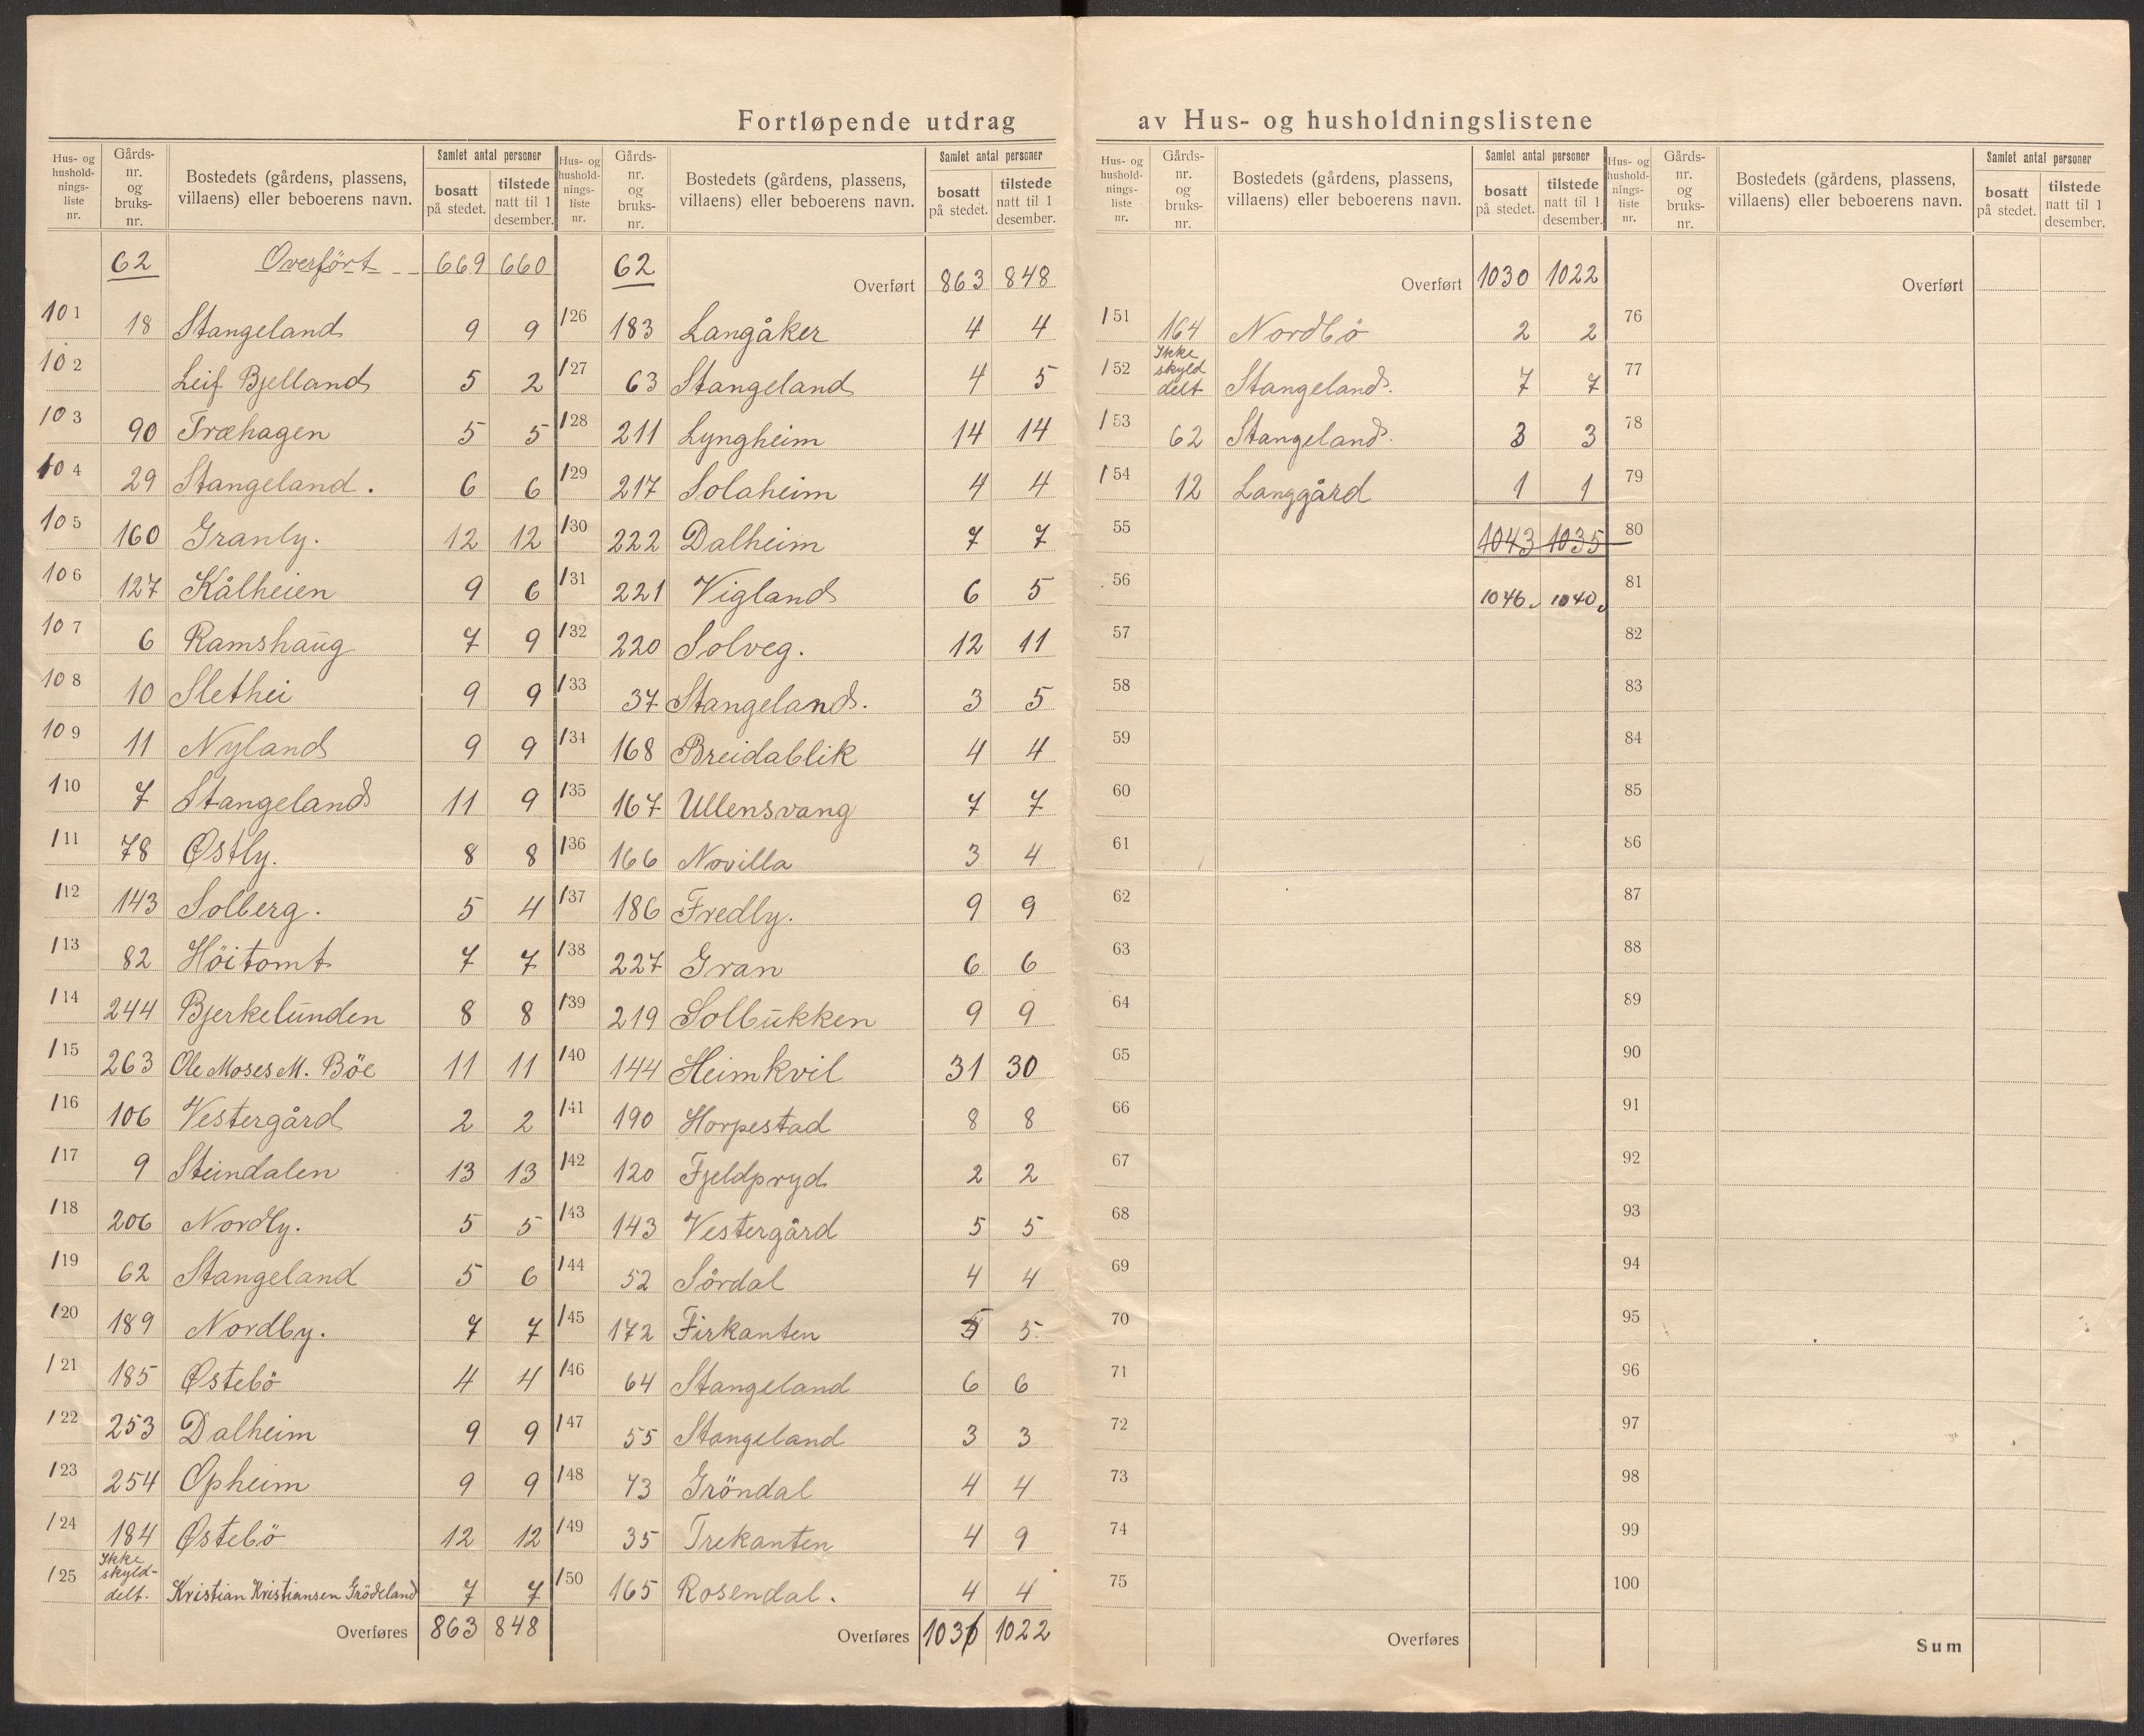 Fortløpende utdrag av Hus- og husholdningslistene
Hus- og husholdningsliste nr. Gårds-nr. og bruks-nr. Bostedets (gårdens, plassens, villaens) eller beboerens navn. Samlet antal personer bosatt på stedet. tilstede natt til 1 desember.
62 Overført 669 660
101 18 Stangeland 9 9
102 Leif Bjelland 5 2
103 90 Træhagen 5 5
104 29 Stangeland. 6 6
105 160 Granly. 12 12
106 127 Kålheien 9 6
107 6 Ramshaug 7 9
108 10 Slethei 9 9
109 11 Nyland 9 9
110 7 Stangeland 11 9
111 78 Østly. 8 8
112 143 Solberg. 5 4
113 82 Höitomt 7 7
114 244 Bjerkelunden 8 8
115 263 Ole Moses M. Böe 11 11
116 106 Vestergård 2 2
117 9 Steindalen 13 13
118 206 Nordly. 5 5
119 62 Stangeland 5 6
120 189 Nordby. 7 7
121 185 Østebö 4 4
122 253 Dalheim 9 9
123 254 Opheim 9 9
124 184 Østebö 12 12
125 Ikke skyld-delt. Kristian Kristiansen Grödeland 7 7
Overføres 863 848
Hus- og husholdningsliste nr. Gårds-nr. og bruks-nr. Bostedets (gårdens, plassens, villaens) eller beboerens navn. Samlet antal personer bosatt på stedet. tilstede natt til 1 desember.
62 Overført 863 848
126 183 Langåker 4 4
127 63 Stangeland 4 5
128 211 Lyngheim 14 14
129 217 Solaheim 4 4
130 222 Dalheim 7 7
131 221 Vigland 6 5
132 220 Solveg. 12 11
133 37 Stangeland. 3 5
134 168 Breidablik 4 4
135 167 Ullensvang 7 7
136 166 Novilla 3 4
137 186 Fredly. 9 9
138 227 Gran 6 6
139 219 Solbukken 9 9
140 144 Heimkvil 31 30
141 190 Horpestad 8 8
142 120 Fjeldpryd 2 2
143 143 Vestergård 5 5
144 52 Sördal 4 4
145 172 Firkanten 5 5
146 64 Stangeland 6 6
147 55 Stangeland 3 3
148 73 Gröndal 4 4
149 35 Trekanten 4 9
150 165 Rosendal. 4 4
Overføres 1030 1022
Hus- og husholdningsliste nr. Gårds-nr. og bruks-nr. Bostedets (gårdens, plassens, villaens) eller beboerens navn. Samlet antal personer bosatt på stedet. tilstede natt til 1 desember.
Overført 1030 1022
151 164 Nordbö 2 2
152 Ikke skyld delt Stangeland. 7 7
153 62 Stangeland. 3 3
154 12 Langgård 1 1
55 1043 1035
56 1046. 1040.
57
58
59
60
61
62
63
64
65
66
67
68
69
70
71
72
73
74
75
Overføres
Hus- og husholdningsliste nr. Gårds-nr. og bruks-nr. Bostedets (gårdens, plassens, villaens) eller beboerens navn. Samlet antal personer bosatt på stedet. tilstede natt til 1 desember.
Overført
76
77
78
79
80
81
82
83
84
85
86
87
88
89
90
91
92
93
94
95
96
97
98
99
100
Sum